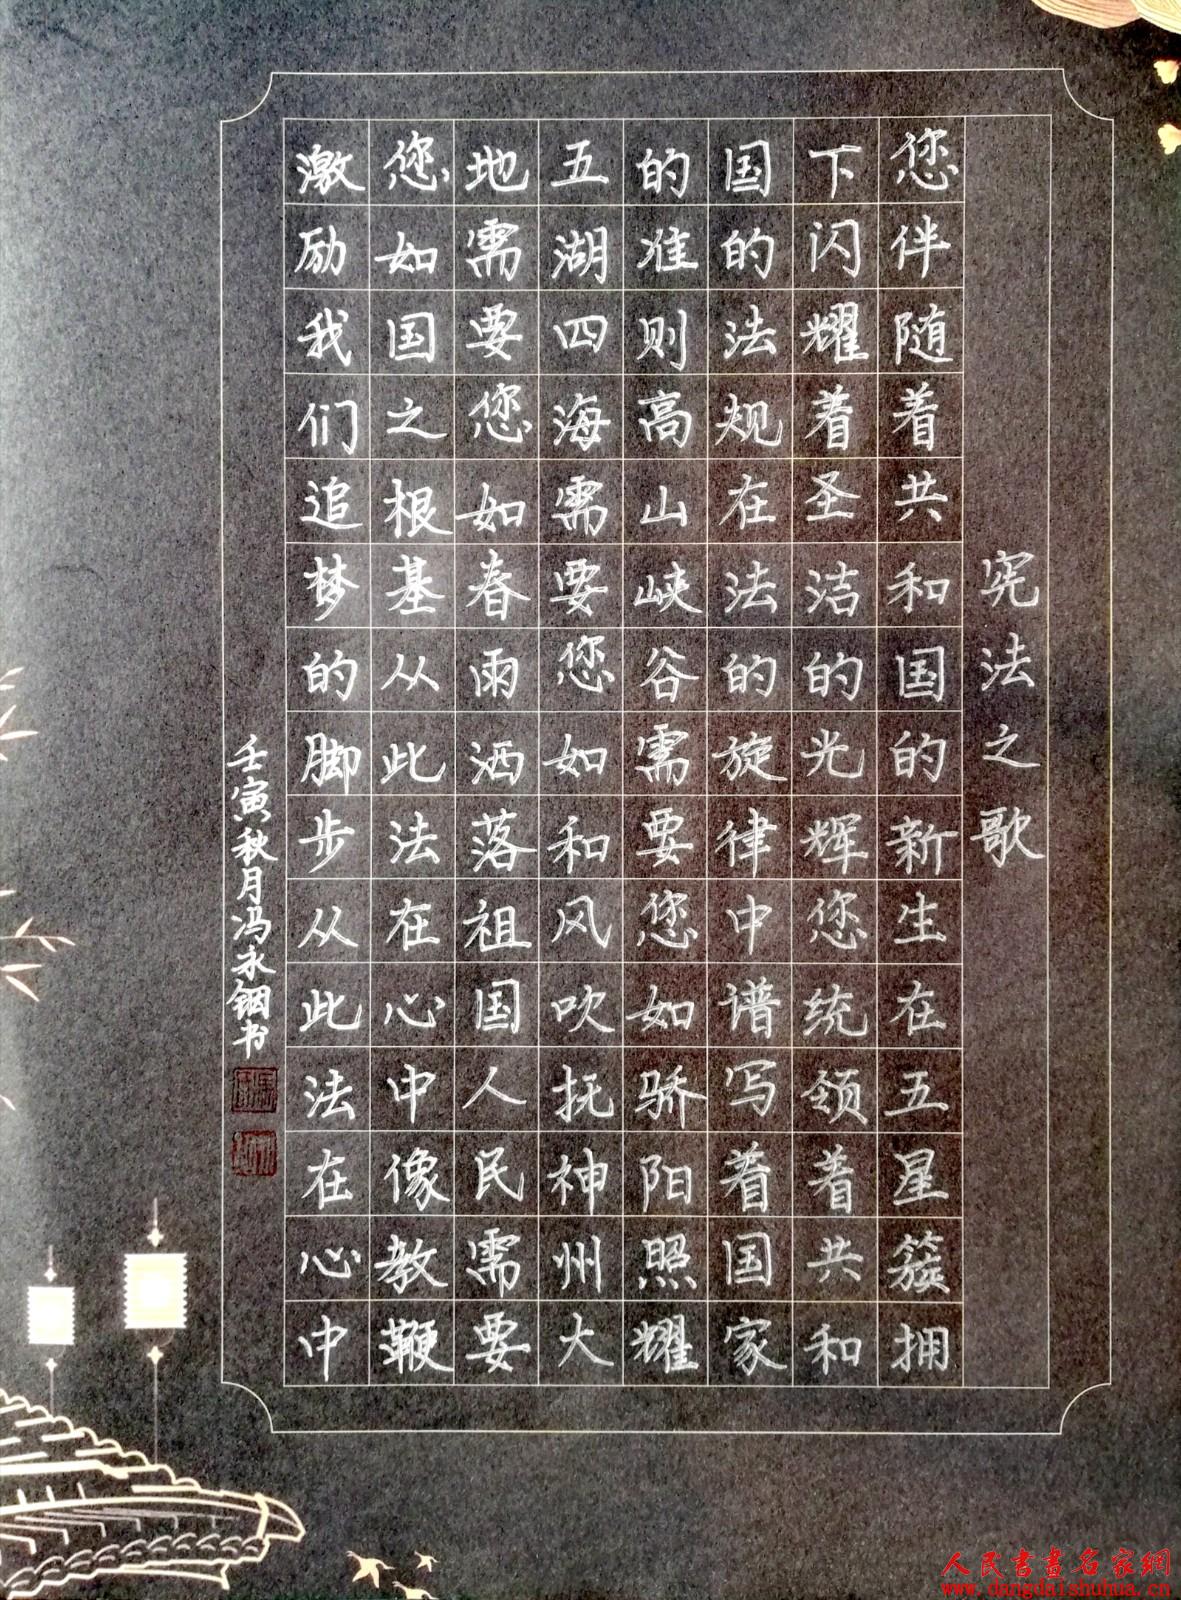 宪法之歌
您伴随着共和国的新生在五星簇拥
下闪耀着圣洁的光辉您统领着共和
国的法规在法的旋律中谱写着国家
的准则高山峡谷需要您如骄阳照耀
五湖四海需要您如和风吹抚神州大
地需要您如春雨洒落祖国人民需要
您如国之根基从此法在心中像教鞭
激励我们追梦的脚步从此法在心中
壬寅秋月冯永钢书
人民书画名家网
www.dangdaishuhua.cn